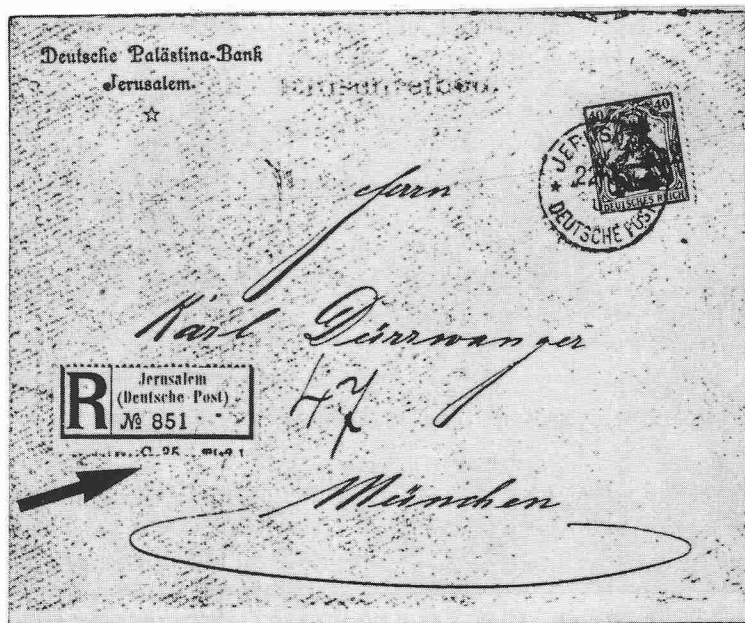 Deutsche Palästina-Bank
Jerusalem.
Einschreiben.
40 40
DEUTSCHES REICH
DEUTSCHE POST
Herrn
Karl Dürrwanger
47
R
Jerusalem
(Deutsche Post)
№ 851
C. 25
München